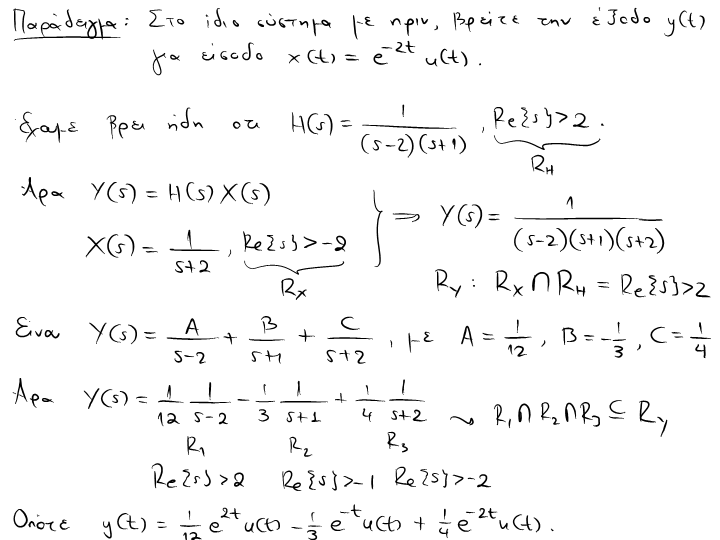 Παράδειγμα: Στο ίδιο σύστημα με πριν, βρείτε την έξοδο y(t)
για είσοδο x(t) = e^{-2t} u(t).
Έχουμε βρει ήδη οτι H(s) = \frac{1}{(s-2)(s+1)}, Re{s}>2.
R_H
Άρα Y(s) = H(s) X(s)
X(s) = \frac{1}{s+2}, Re{s}>-2 } ⟹ Y(s) = \frac{1}{(s-2)(s+1)(s+2)}
R_X
R_Y : R_X ∩ R_H = Re{s}>2
Είναι Y(s) = \frac{A}{s-2} + \frac{B}{s+1} + \frac{C}{s+2}, με A = \frac{1}{12}, B = -\frac{1}{3}, C = \frac{1}{4}
Άρα Y(s) = \frac{1}{12} \frac{1}{s-2} - \frac{1}{3} \frac{1}{s+1} + \frac{1}{4} \frac{1}{s+2} ⤳ R_1 ∩ R_2 ∩ R_3 ⊆ R_Y
R_1 R_2 R_3
Re{s}>2 Re{s}>-1 Re{s}>-2
Οπότε y(t) = \frac{1}{12} e^{2t} u(t) - \frac{1}{3} e^{-t} u(t) + \frac{1}{4} e^{-2t} u(t).